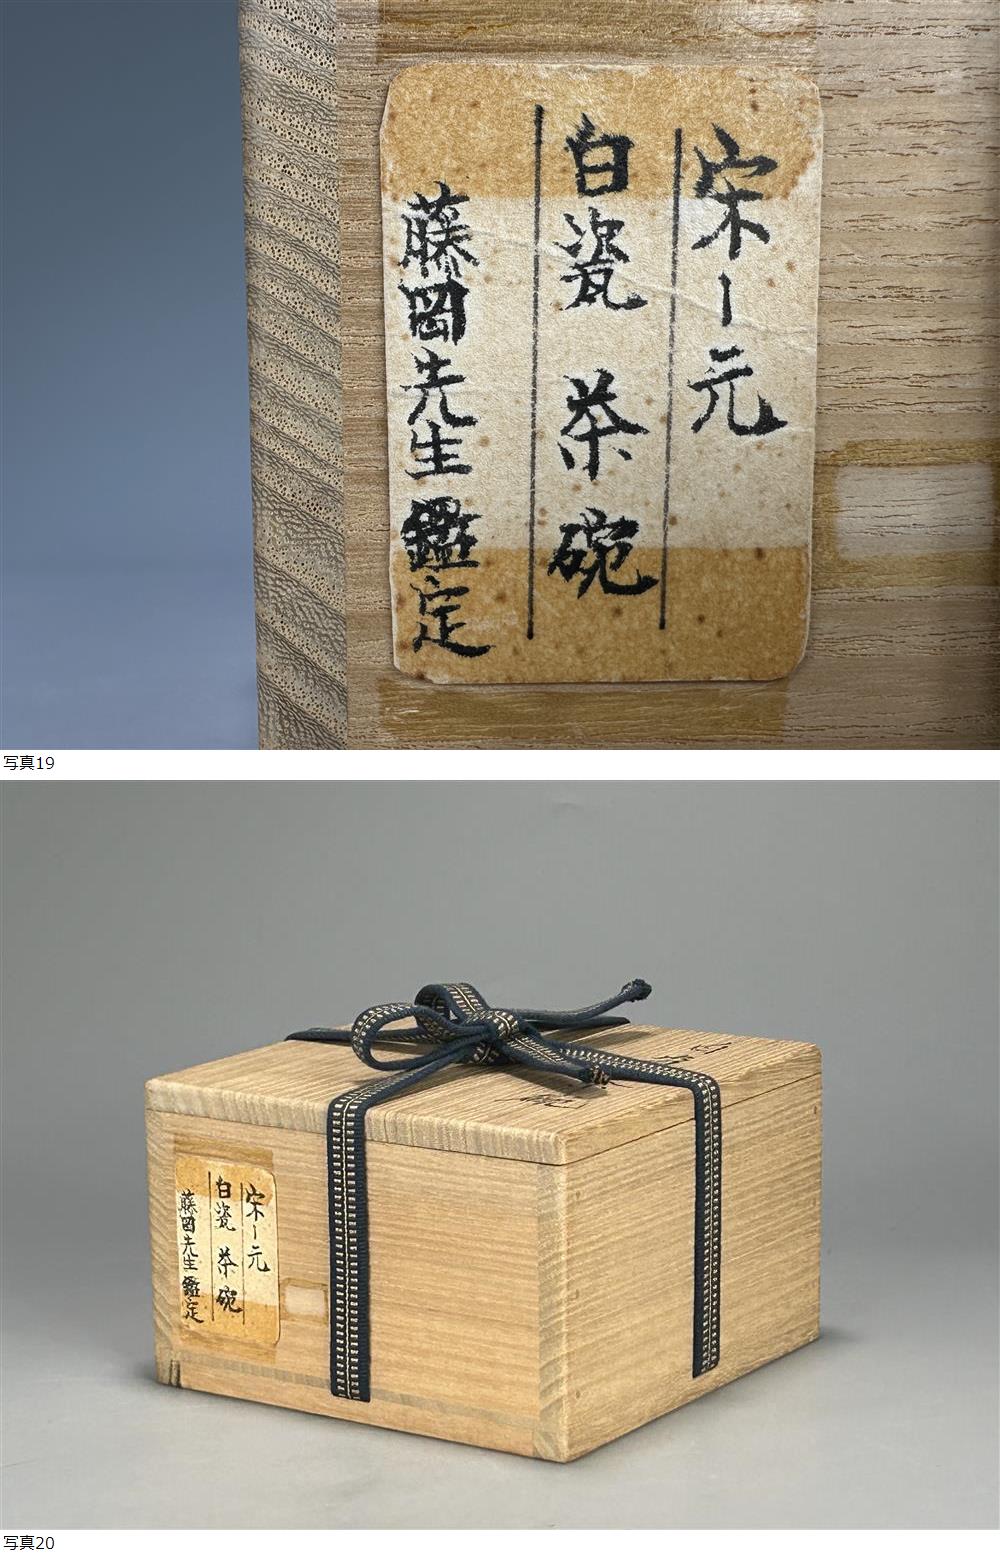 宋ー元
白瓷 茶碗
藤岡先生鑑定
写真19
宋ー元
白瓷 茶碗
藤岡先生鑑定
写真20